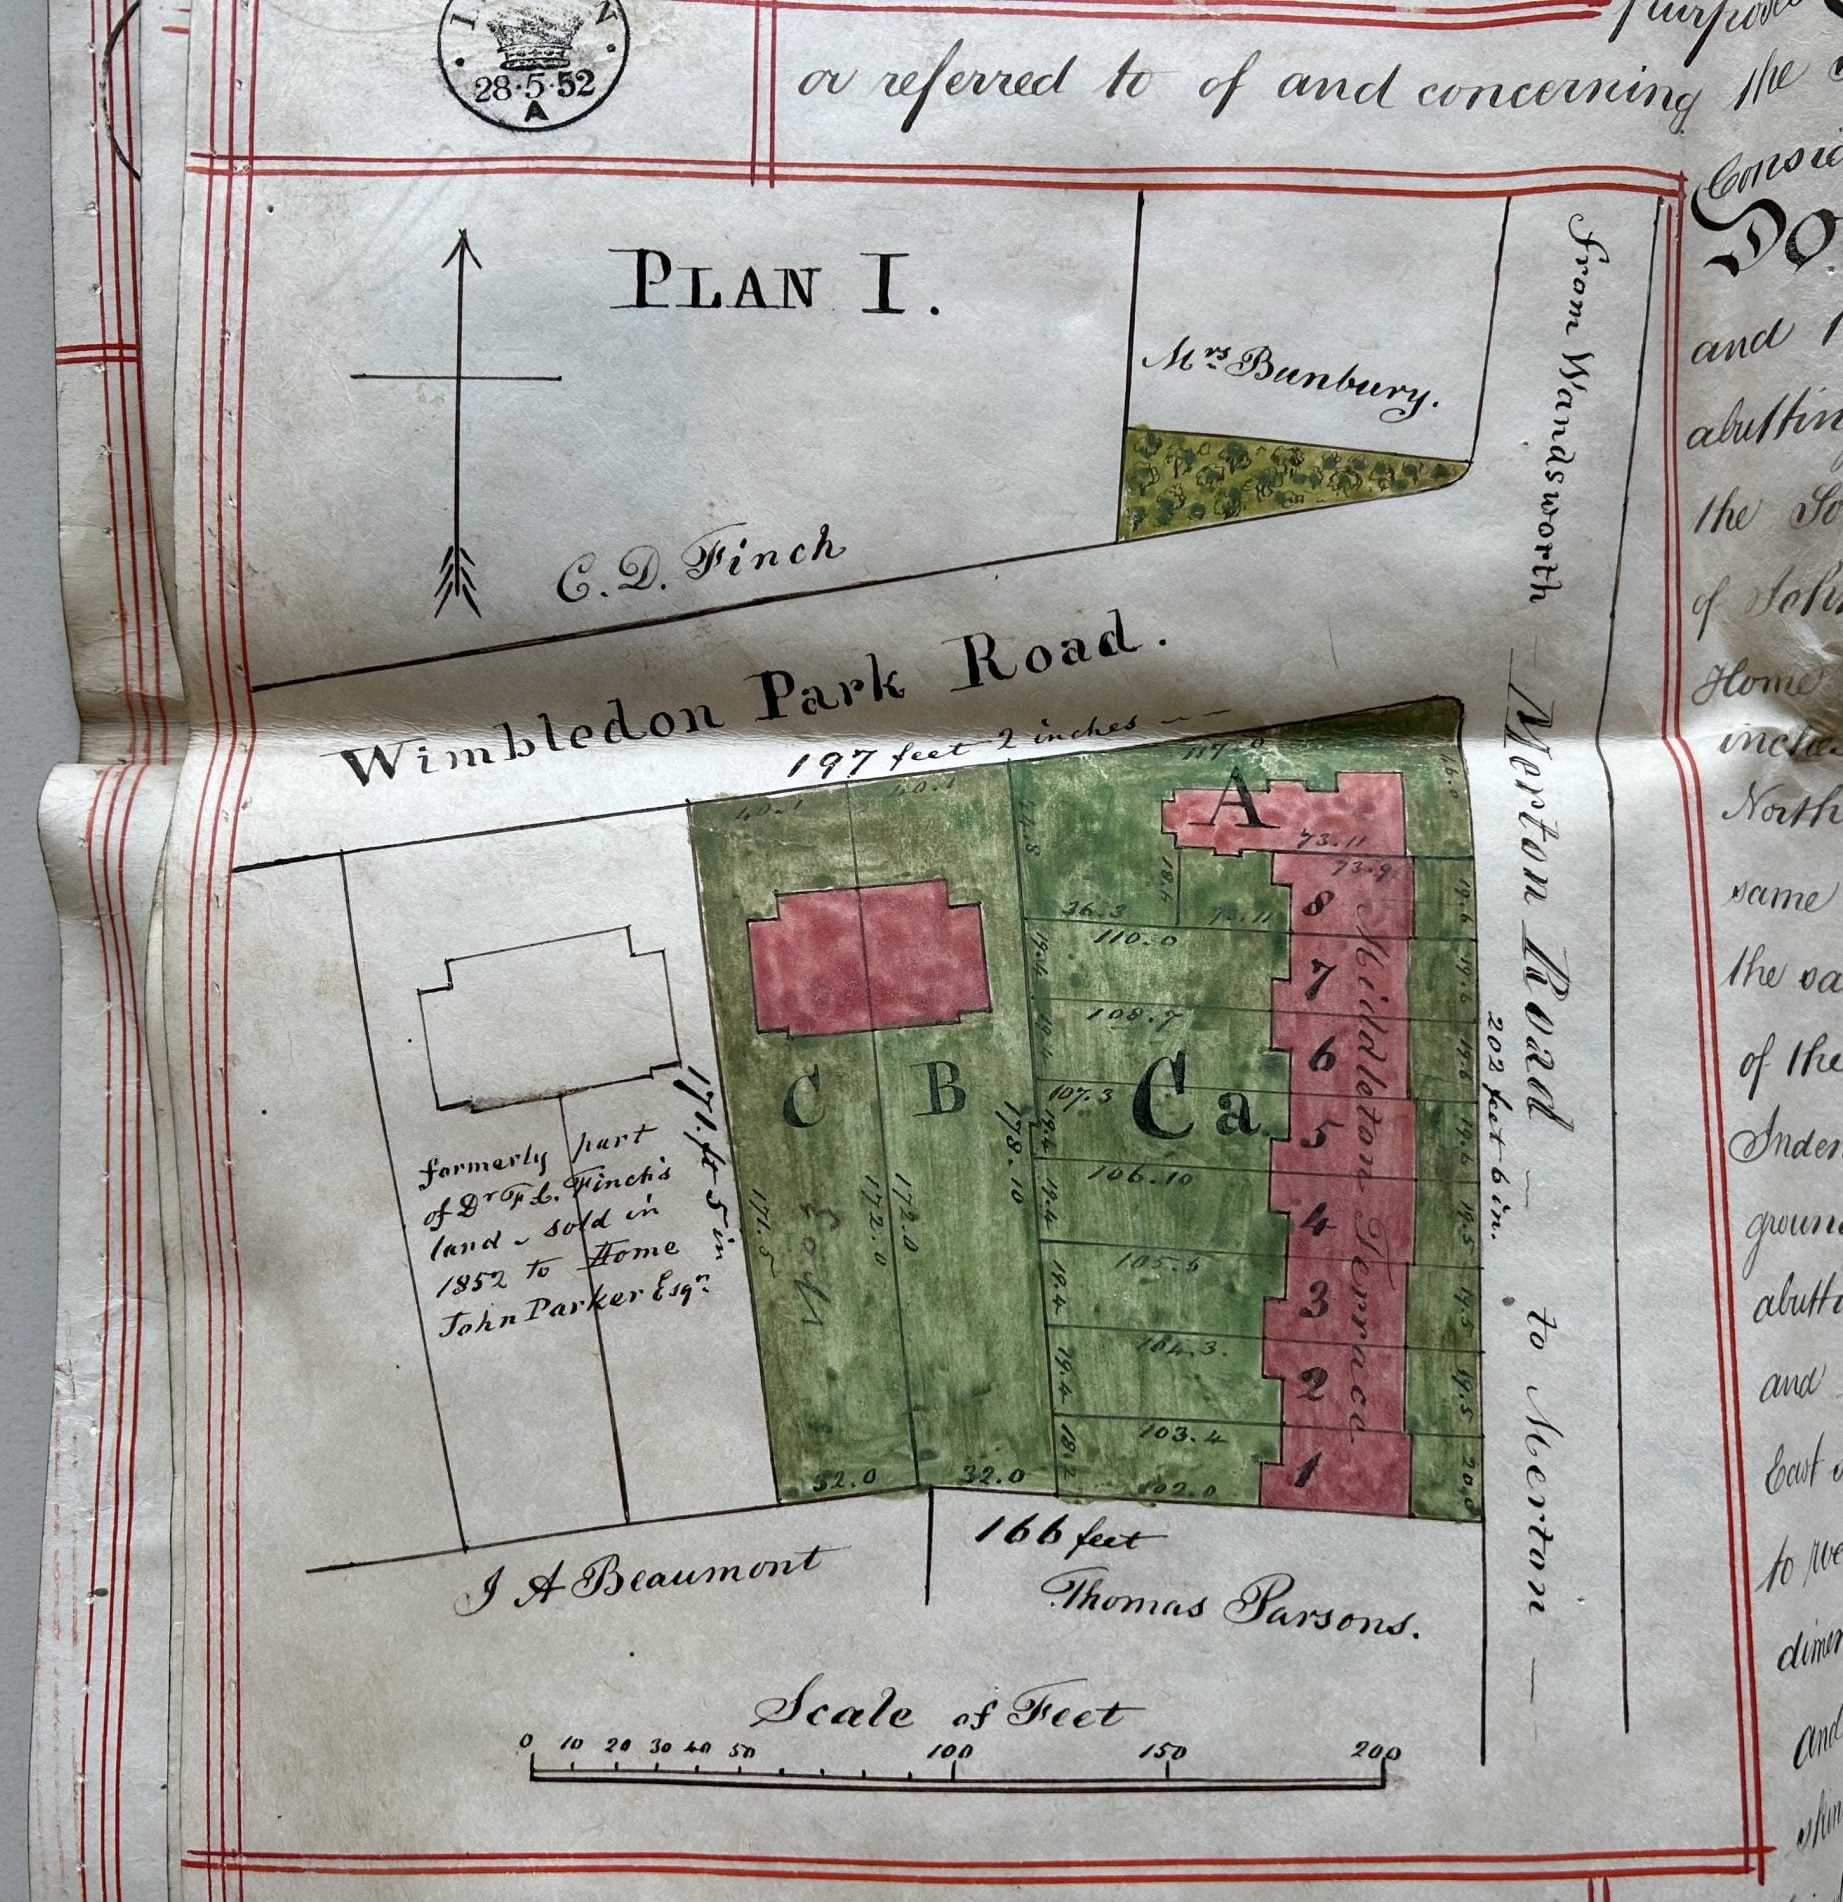 28·5·52
A
or referred to of and concerning the
PLAN I.
Mrs Bunbury.
From Wandsworth — Merton Road — to Merton —
C. D. Finch
Wimbledon Park Road.
197 feet 2 inches
40.1
40.1
117.0
A
73.11
73.9
18.6
36.3
73.11
110.0
108.7
107.3
106.10
105.6
104.3.
103.4
102.0
19.4
19.4
19.4
19.4
19.4
19.4
18.2
19.6
19.6
19.6
19.6
19.5
19.5
19.5
8
7
6
5
4
3
2
1
Middleton Terrace
Ca
C
B
171. ft 5 in
171.5
172.0
172.0
178.10
202 feet 6 in.
32.0
32.0
formerly part
of Dr F. C. Finch's
land - sold in
1852 to Home
John Parker Esqr.
166 feet
J A Beaumont
Thomas Parsons.
Scale of Feet
0 10 20 30 40 50 100 150 200
and
the
of
Home
North
same
of the
Inden
ground
and
East
and